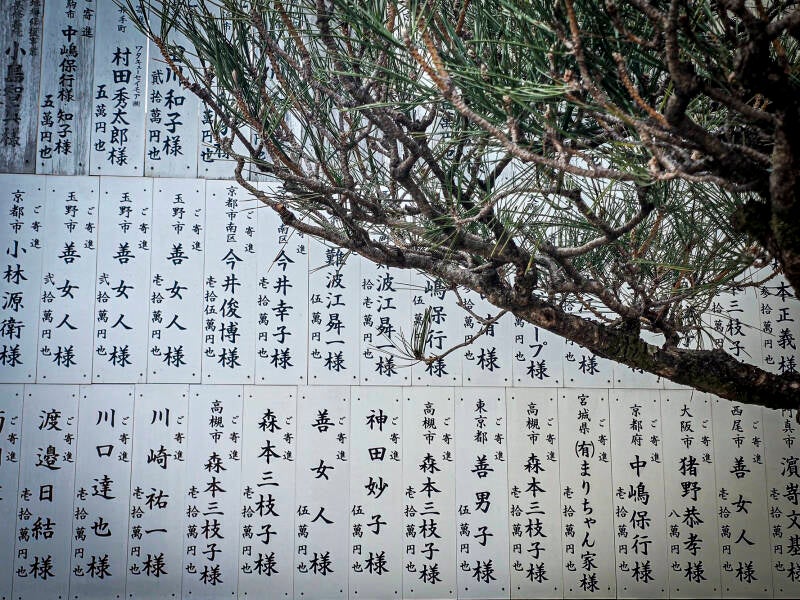 川和子様
弐拾萬円也
ワタキューセイモア㈱
村田秀太郎様
五萬円也
ご寄進
中嶋保行様 知子様
五萬円也
本正義様
参拾萬円也
本三枝子
ープ様
萬円也
嶋保行様
壱拾萬円也
波江昇
様
壱拾壱萬円也
難波江昇一様
伍萬円也
今井幸子様
壱拾萬円也
ご寄進
京都市南区
今井俊博様
壱拾伍萬円也
ご寄進
玉野市
善女人様
壱拾萬円也
ご寄進
玉野市
善女人様
弐拾萬円也
ご寄進
玉野市
善女人様
弐拾萬円也
ご寄進
京都市
小林源衛様
壱拾萬円也
門真市
濵嵜文基
壱拾萬円也
ご寄進
西尾市
善女人様
壱拾萬円也
ご寄進
大阪市
猪野恭孝様
八萬円也
ご寄進
京都府
中嶋保行様
壱拾萬円也
ご寄進
宮城県
(有)まりちゃん家様
壱拾萬円也
ご寄進
高槻市
森本三枝子様
壱拾萬円也
ご寄進
東京都
善男子様
伍萬円也
ご寄進
高槻市
森本三枝子様
壱拾萬円也
ご寄進
神田妙子様
伍萬円也
ご寄進
善女人様
伍萬円也
ご寄進
森本三枝子様
壱拾萬円也
ご寄進
高槻市
森本三枝子様
壱拾萬円也
ご寄進
川崎祐一様
壱拾萬円也
ご寄進
川口達也様
壱拾萬円也
ご寄進
渡邉日結様
壱拾萬円也
ご寄進